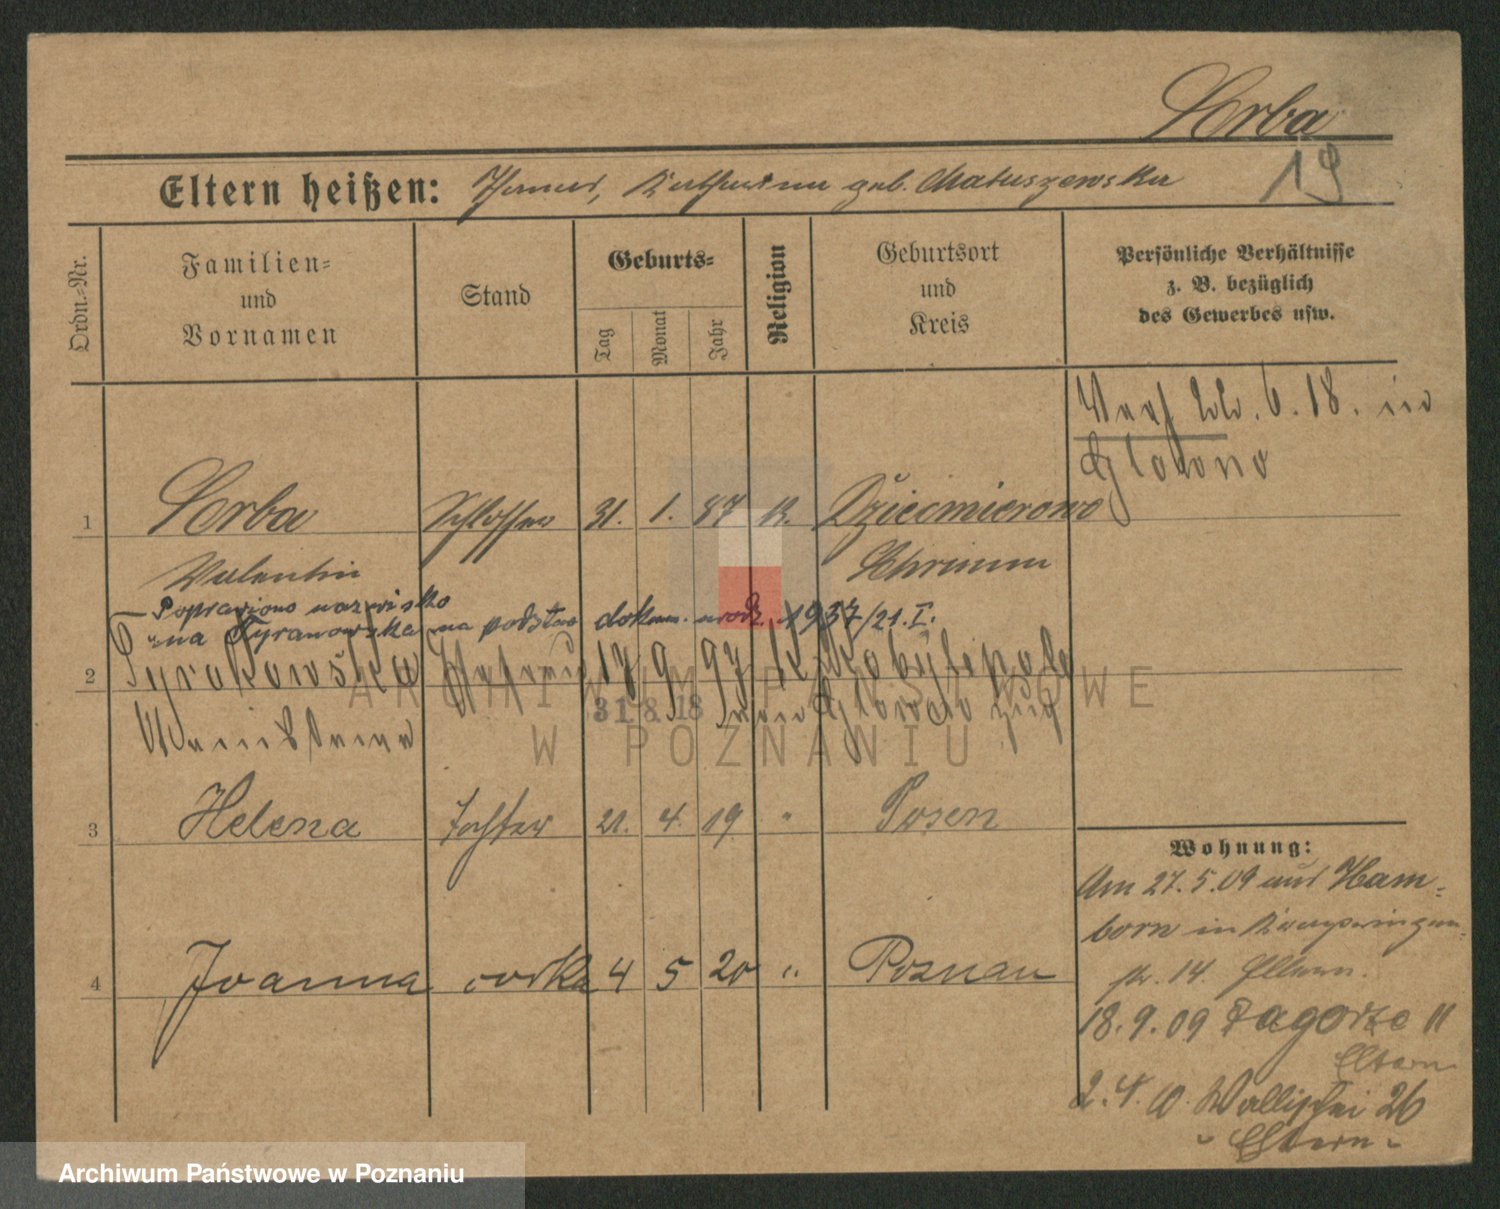 Serba
19
Eltern heißen: Thomas, Katharina geb. Matuszewska
Ordn.=Nr.
Familien=
und
Vornamen
Stand
Geburts=
Tag
Monat
Jahr
Religion
Geburtsort
und
Kreis
Persönliche Verhältnisse
z. B. bezüglich
des Gewerbes usw.
6. 18. in
Głowno
1 Serba Schlosser 31. 1. 87 K. Dziecmierowo
Valentin Schrimm
Poprawiono nazwisko
na Tyranowska na podstaw dokum. urodz. 1937/21. I.
2 Tyrakowska 17 9 97 K Kobylepole
31. 8. 18
3 Helena Tochter 21. 4. 19 " Posen
4 Joanna córka 4 5 20 " Poznań
Wohnung:
Am 27. 5. 09 aus Ham=
born in
str. 14. Eltern.
18. 9. 09 Zagorze 11
Eltern
2. 4. 10. Wallischei 26
- Eltern -
ARCHIWUM PAŃSTWOWE
W POZNANIU
Archiwum Państwowe w Poznaniu